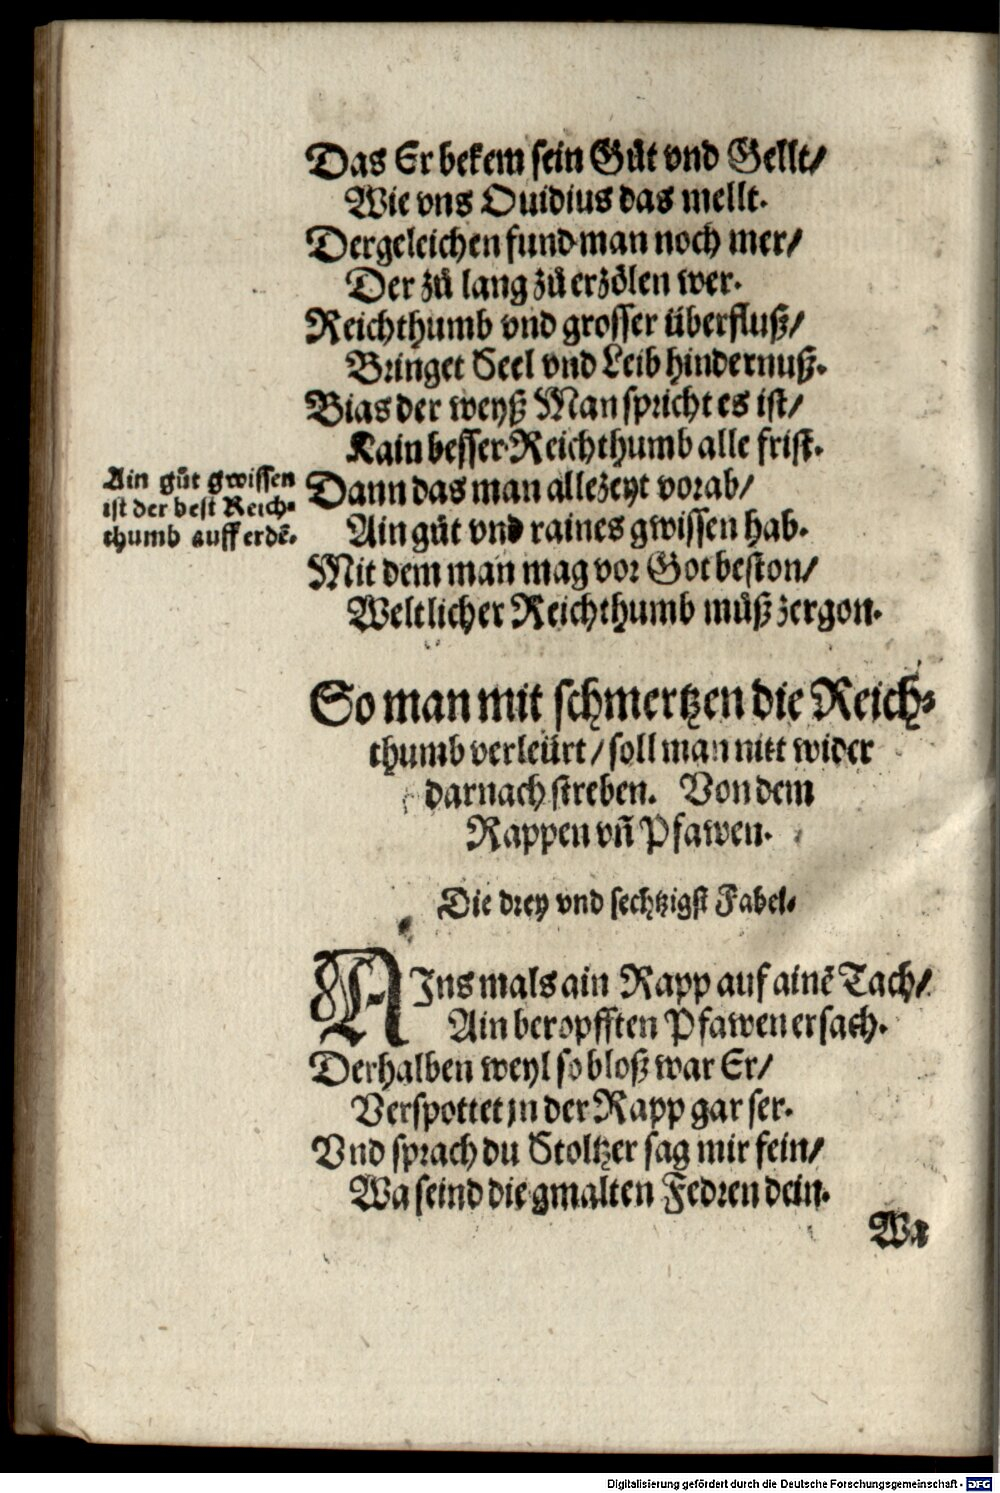 Das Er bekem sein Gůt vnd Gellt/
Wie vns Ouidius das mellt.
Dergeleichen fund man noch mer/
Der zů lang zů erzölen wer.
Reichthumb vnd grosser überfluß/
Bringet Seel vnd Leib hindernuß.
Bias der weyß Man spricht es ist/
Kain besser Reichthumb alle frist.
Ain gůt gwissen
ist der best Reich⸗
thumb auff erdē.
Dann das man allezeyt vorab/
Ain gůt vnd raines gwissen hab.
Mit dem man mag vor Got beston/
Weltlicher Reichthumb můß zergon.
So man mit schmertzen die Reich⸗
thumb verleürt/ soll man nitt wider
darnach streben. Von dem
Rappen vñ Pfawen.
Die drey vnd sechtzigst Fabel.
AJns mals ain Rapp auf ainē Tach/
Ain beropfften Pfawen ersach.
Derhalben weyl so bloß war Er/
Verspottet jn der Rapp gar ser.
Vnd sprach du Stoltzer sag mir fein/
Wa seind die gmalten Fedren dein.
Wa
Digitalisierung gefördert durch die Deutsche Forschungsgemeinschaft - DFG